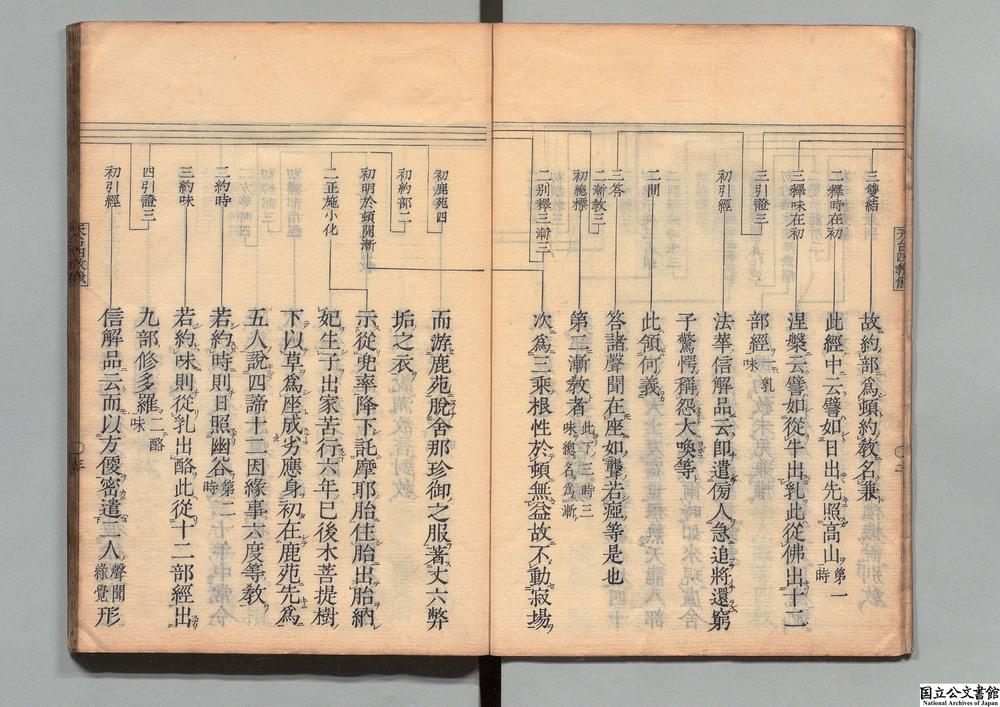 三雙結
二釋時在初
三釋味在初
三引證三
初引經
二問
三答
二漸教三
初總標
二別釋三漸三
故約部爲頓約教名兼
此經中云譬如日出先照高山第一時
涅槃云譬如從牛出乳此從佛出十二
部經乳味
法華信解品云卽遣傍人急追將還窮
子驚愕稱怨大喚等
此領何義
答諸聲聞在座如聾若瘂等是也
第二漸教者此下三時三味總名爲漸
次爲三乘根性於頓無益故不動寂場
天台四教儀
初鹿苑四
初約部二
初明於頓開漸
二正施小化
二約時
三約味
四引證三
初引經
而游鹿苑脫舍那珍御之服著丈六弊
垢之衣
示從兜率降下託摩耶胎住胎出胎納
妃生子出家苦行六年已後木菩提樹
下以草爲座成劣應身初在鹿苑先爲
五人說四諦十二因緣事六度等教
若約時則日照幽谷第二時
若約味則從乳出酪此從十二部經出
九部修多羅二酪味
信解品云而以方便密遣二人聲聞緣覺形
天台四教儀
国立公文書館
National Archives of Japan